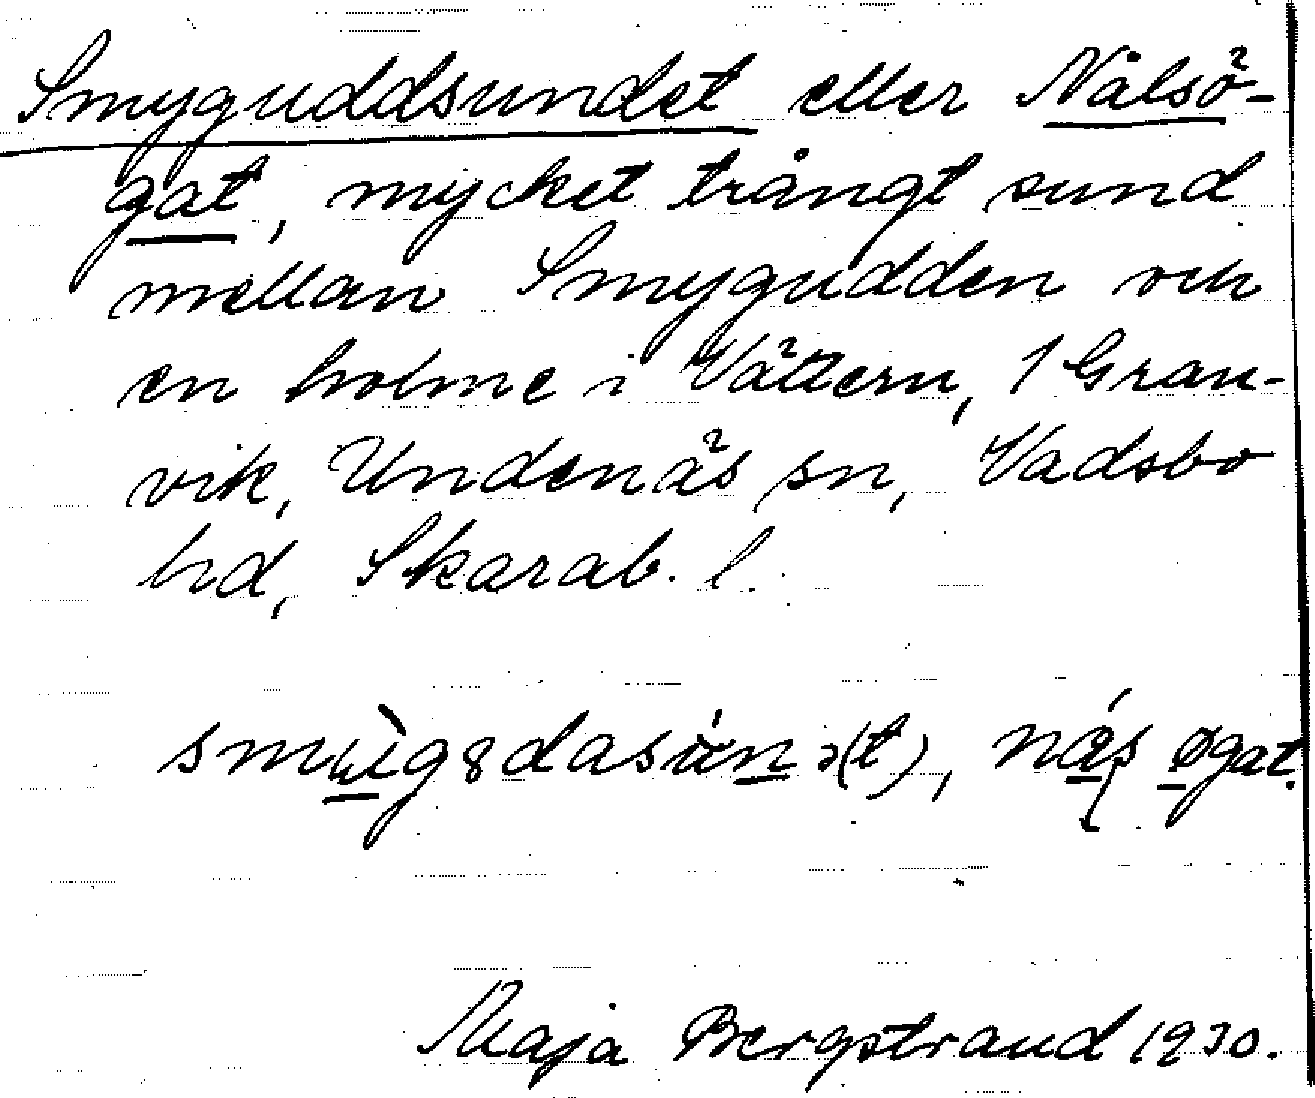 Smyguddsundet eller Nålsö-
gat, mycket trångt sund
mellan Smygudden och
en holme i Vättern, 1 Gran-
vik, Undenäs sn, Vadsbo
hd, Skarab. l.
Maja Bergstrand 1930.